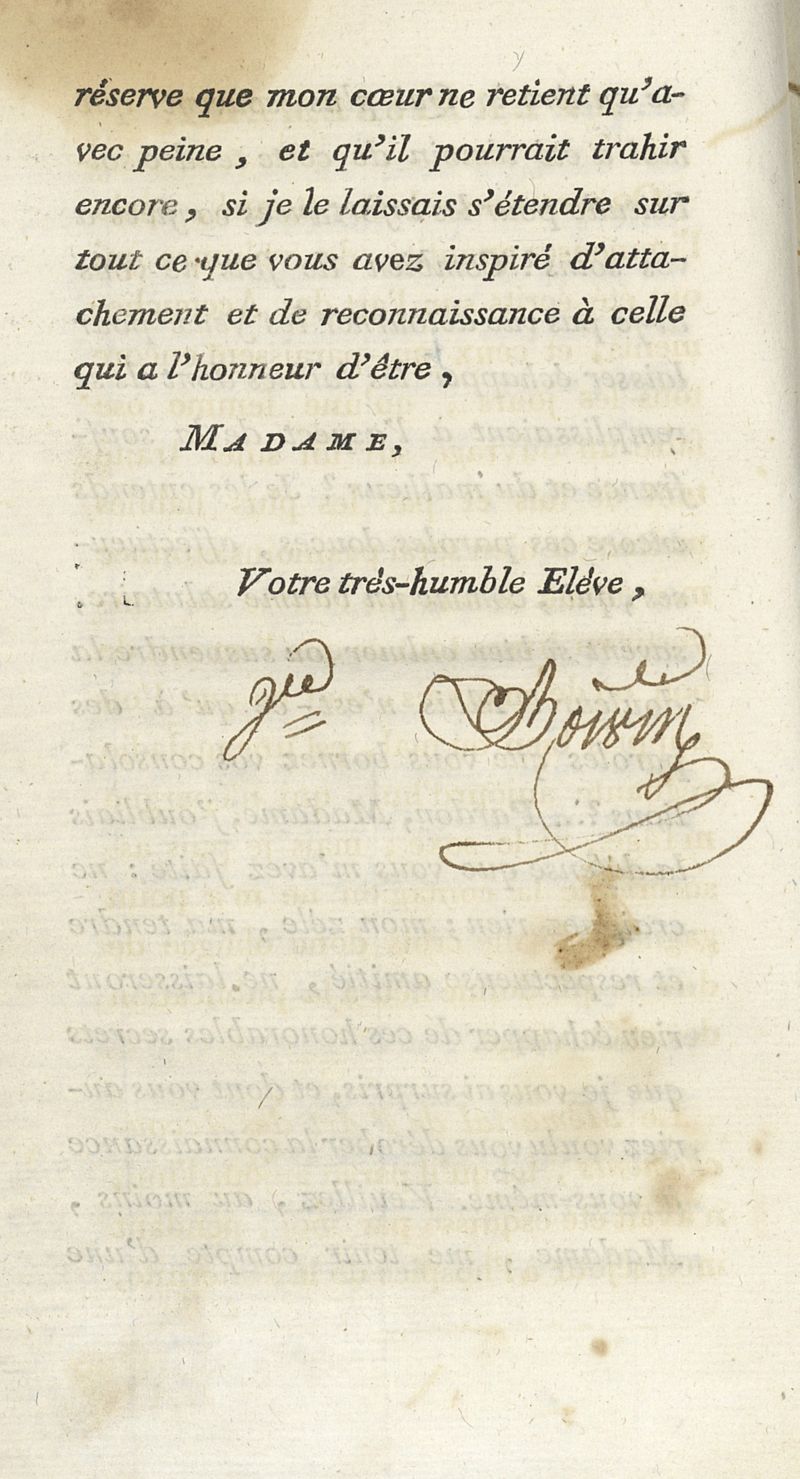 réserve que mon cœur ne retient qu'a-
vec peine, et qu'il pourrait trahir
encore, si je le laissais s'étendre sur
tout ce que vous avez inspiré d'atta-
chement et de reconnaissance à celle
qui a l'honneur d'être,
MADAME,
Votre très-humble Elève,
Boivin